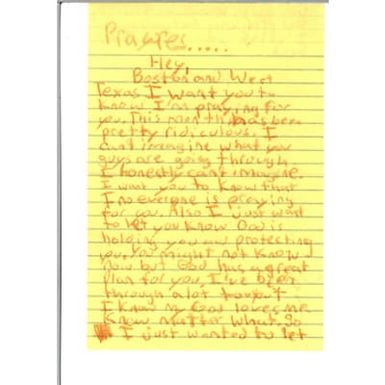 Prayres.....
Hey,
Boston and West
Texas I want you to
know I'm praying for
you. This month has been
pretty ridiculous. I
cant imagine what you
guys are going through.
I honestly cant imagine.
I want you to know that
I no everyone is praying
for you. Also I just want
to let you know God is
holding you and protecting
you. You might not know
now but God has a great
plan for you. I've been
through alot but
I know my God loves me
know matter what. So
I just wanted to let